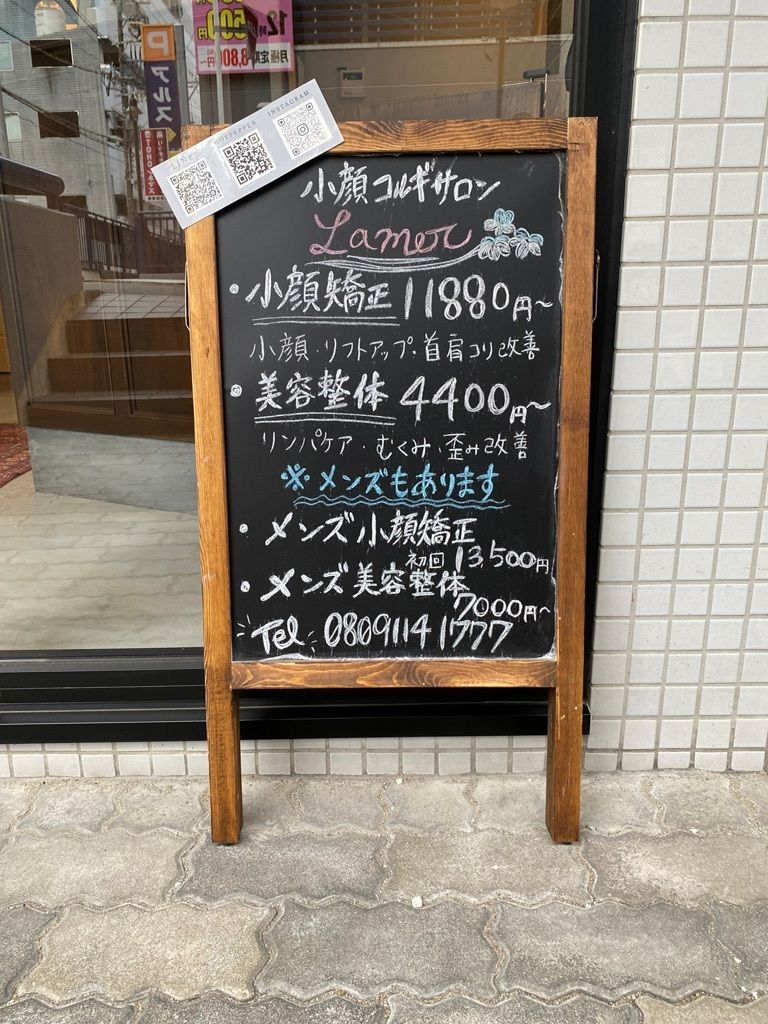 LINE HOTPEPPER INSTAGRAM
小顔コルギサロン
Lamer
・小顔矯正 11880円~
小顔・リフトアップ・首肩コリ改善
・美容整体 4400円~
リンパケア・むくみ・歪み改善
※メンズもあります
・メンズ小顔矯正
初回 13,500円
・メンズ美容整体
7000円~
Tel 08091141777
P アルス